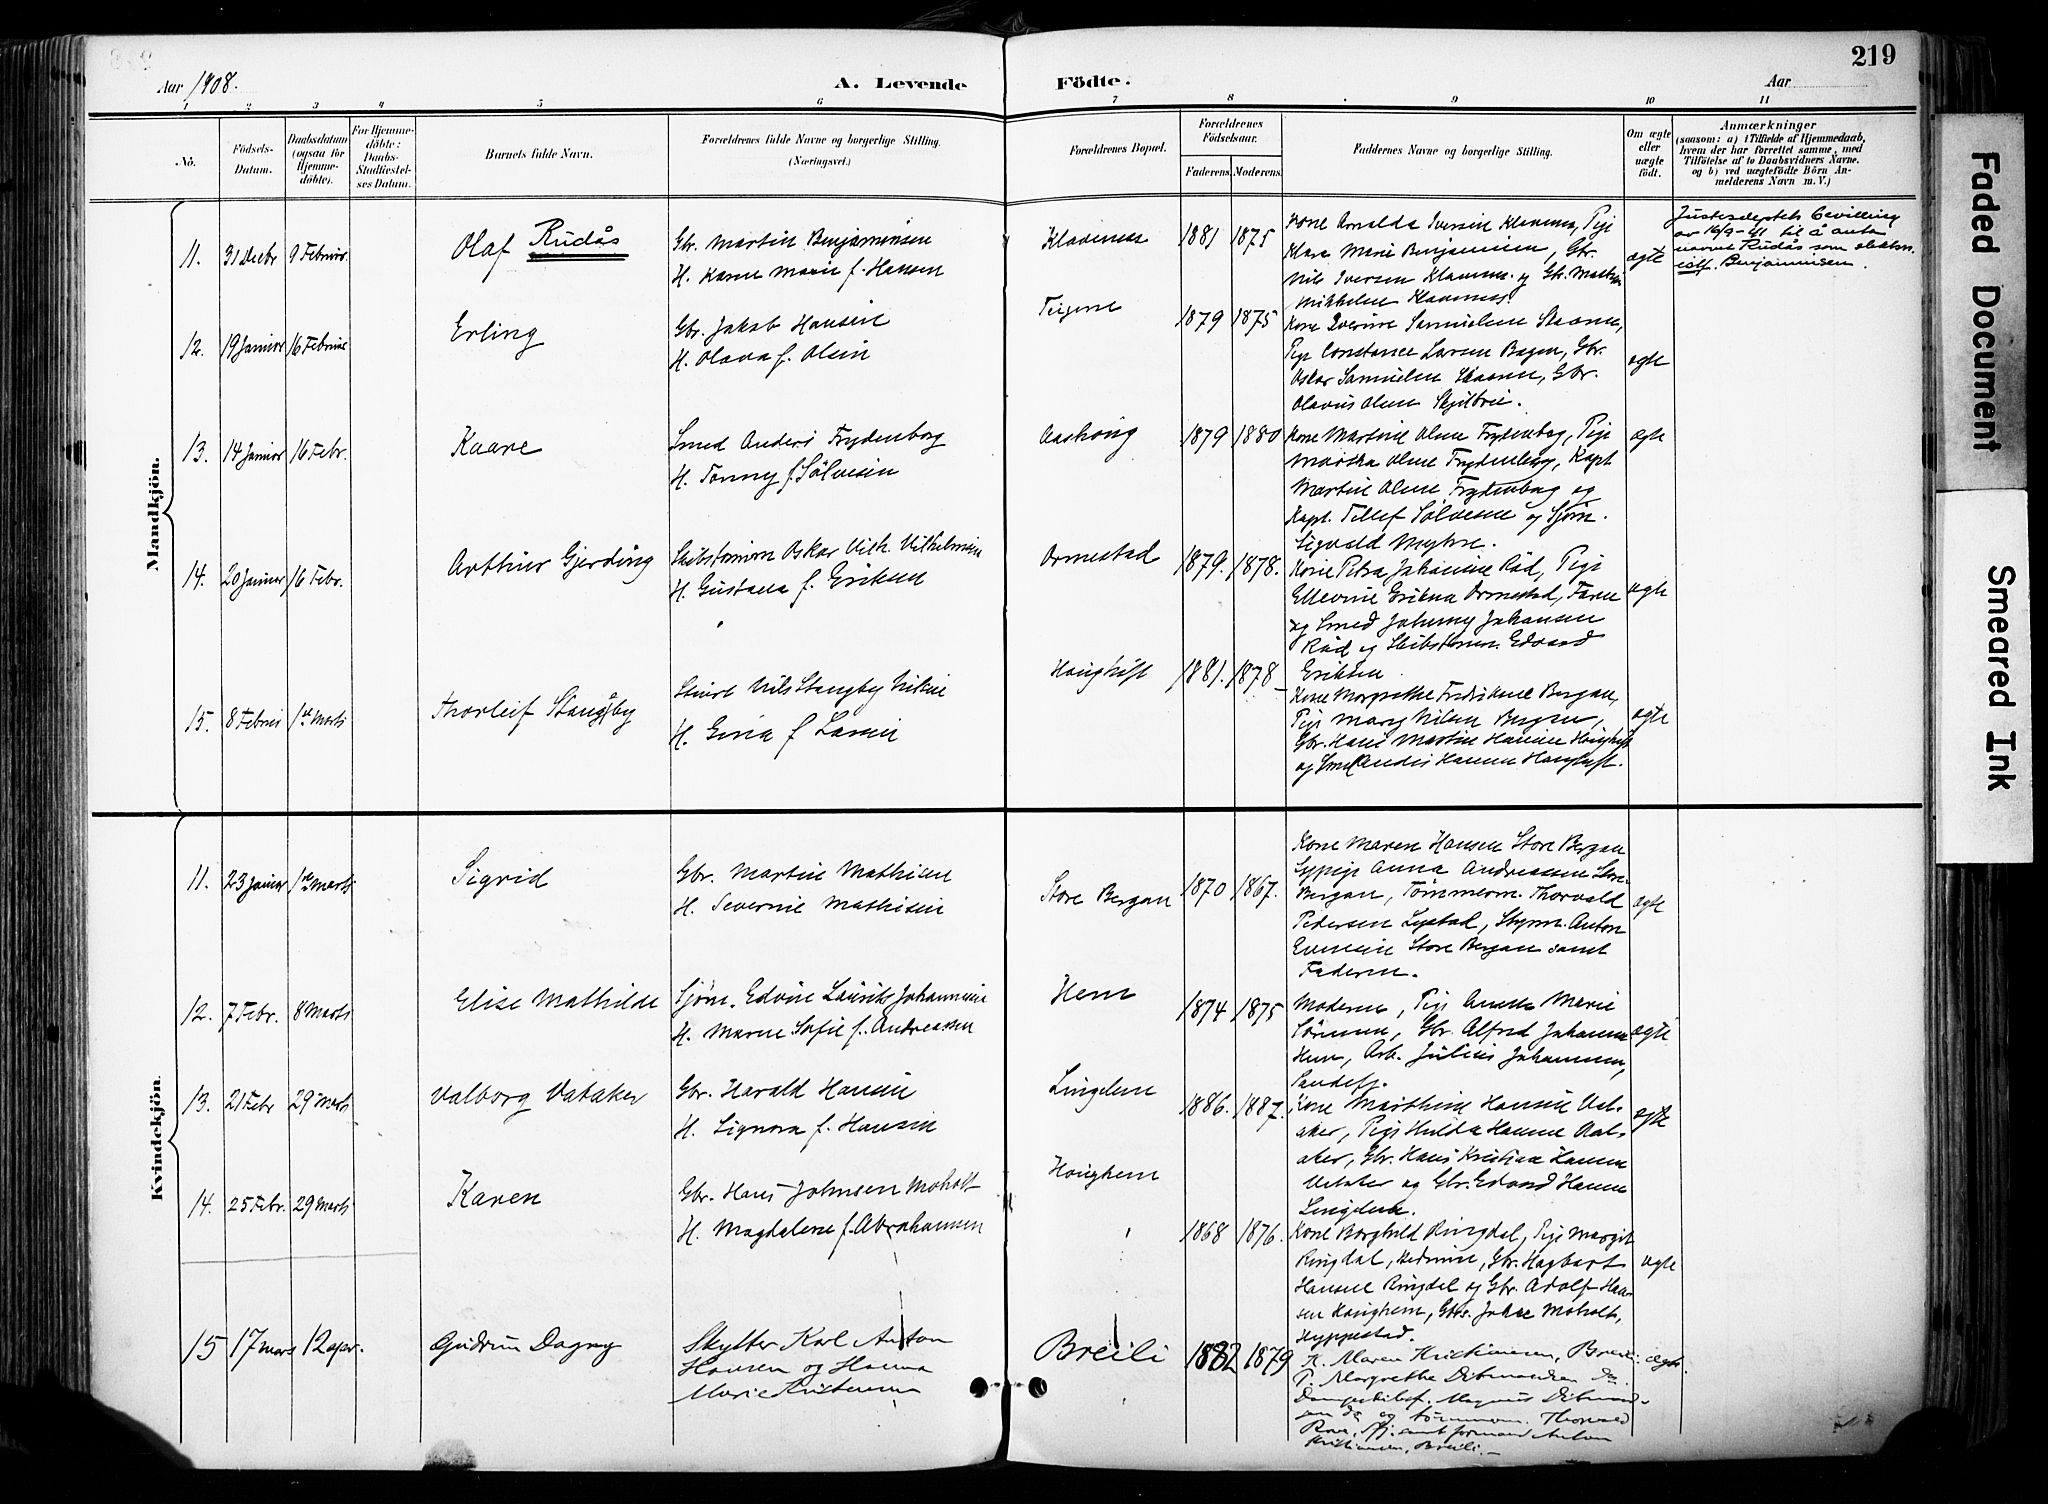 219
Aar 1908.
A. Levende
Födte.
Aar
1 2 3 4 5 6 7 8 9 10 11
No.
Födsels-
Datum.
Daabsdatum
(ogsaa for
Hjemme-
döbte).
For Hjemme-
döbte:
Daabs-
Stadfæstel-
ses Datum.
Barnets fulde Navn.
Forældrenes fulde Navne og borgerlige Stilling.
(Næringsvei.)
Forældrenes Bopæl.
Forældrenes
Födselsaar.
Faderens. Moderens.
Faddernes Navne og borgerlige Stilling.
Om ægte
eller
uægte
födt.
Anmærkninger
(saasom: a) i Tilfælde af Hjemmedaab,
hvem der har forrettet samme, med
Tilföielse af to Daabsvidners Navne.
og b) ved uægtefödte Börn An-
melderens Navn m. V.)
Mandkjön.
11. 31 Decbr 9 Februar
Olaf Rudås
Gbr. Martin Benjaminsen
H. Karen Marie f. Hansen
Klavenes
1881 1875
Klara Marie Benjaminsen, Gbr.
Nils Iversen Klavenes og Gbr. Mathis
Mikkelsen Klavenes
ægte
av 16/9-41 til å anta
navnet Rudås som slektsn.
istf. Benjaminsen.
12. 19 Januar 16 Februar
Erling
Gbr. Jakob Hansen
H. Olava f. Olsen
1879 1875
Pige Constance Larsen Bogen, Gbr.
Oskar Samuelsen Skaanen, Gbr.
Olavus Olsen
ægte
13. 14 Januar 16 Febr.
Kaare
Smed Anders Frydenborg
H. Tonny f. Sölvesen
1879 1880
Kone Martine Olsen Frydenborg, Pige
Martha Olsen Frydenborg, Kapt.
Martin Olsen Frydenborg og
Kapt. Tellef Sölvesen og Sjöm.
Sigvald
ægte
14. 20 Januar 16 Febr.
Arthur Gjerding
Skibstömm Oskar Vilh. Vilhelmsen
H. Gustava f. Eriksen
Ormestad
1879. 1878.
Kone Petra Johansen Råd, Pige
Ellevine Eriksen Ormestad,
og Smed Johnny Johansen
Råd og Skibstömm Edvard
Eriksen
ægte
15. 8 Februar 1ste Marts
Thorleif Stangeby
Stuert Nils Stangeby Nilsen
H. Gina f. Larsen
1881. 1878
Kone Margrethe Fredriksen Bergan,
Pige Mary Nilsen Bergan,
Gbr. Hans Martin Hansen
og Smed Anders Hansen
ægte
Kvindekjön.
11. 23 Januar 1ste Marts
Sigrid
Gbr. Martin Mathisen
H. Severine Mathisen
Store Bergan
1870 1867.
Kone Maren Hansen Store Bergan
Sypige Anna Andreasen Store
Bergan, Tömmerm. Thorvald
Pedersen Lystad, Styrm. Anton
Evensen Store Bergan samt
Faderen.
ægte
12. 7 Febr. 8 Marts
Elise Mathilde
Sjöm. Edvin Laurits Johannesen
H. Maren Sofie f. Andreassen
Hem
1874 1875
Moderen, Pige Anna Marie
Sörensen, Gbr. Alfred Johannesen
Hem, Arb. Julius Johannesen,
Sandefj.
ægte
13. 21 Febr 29 Marts
Valborg Vataker
Gbr. Harald Hansen
H. Signora f. Hansen
Lingelem
1886. 1887.
Kone Marthine Hansen Vat-
aker, Pige Hulda Hansen Vat-
aker, Gbr. Hans Kristian Hansen
Vataker og Gbr. Edvard Hansen
Lingelem.
ægte
14. 25 Febr. 29 Marts
Karen
Gbr. Hans Johnsen Moholt
H. Magdalene f. Abrahamsen
Haughem
1868 1876.
Kone Borghild Ringdal, Pige Margit
Ringdal, Gbr. Hagbart
Hansen Ringdal og Gbr. Adolf Han-
sen Haughem, Gbr. Johan Moholt,
Hyppestad.
ægte
15 17 mars 12 apr.
Gudrun Dagny
Skytter Karl Anton
Hansen og Hanna
Marie Kristiansen
Breili
1882 1879
K. Maren Kristiansen, Breili.
P. Margrethe Ditmandsen
Magnus Ditmand-
sen Thorvald
samt formand Anton
Kristiansen, Breili.
ægte.
Faded Document
Smeared Ink